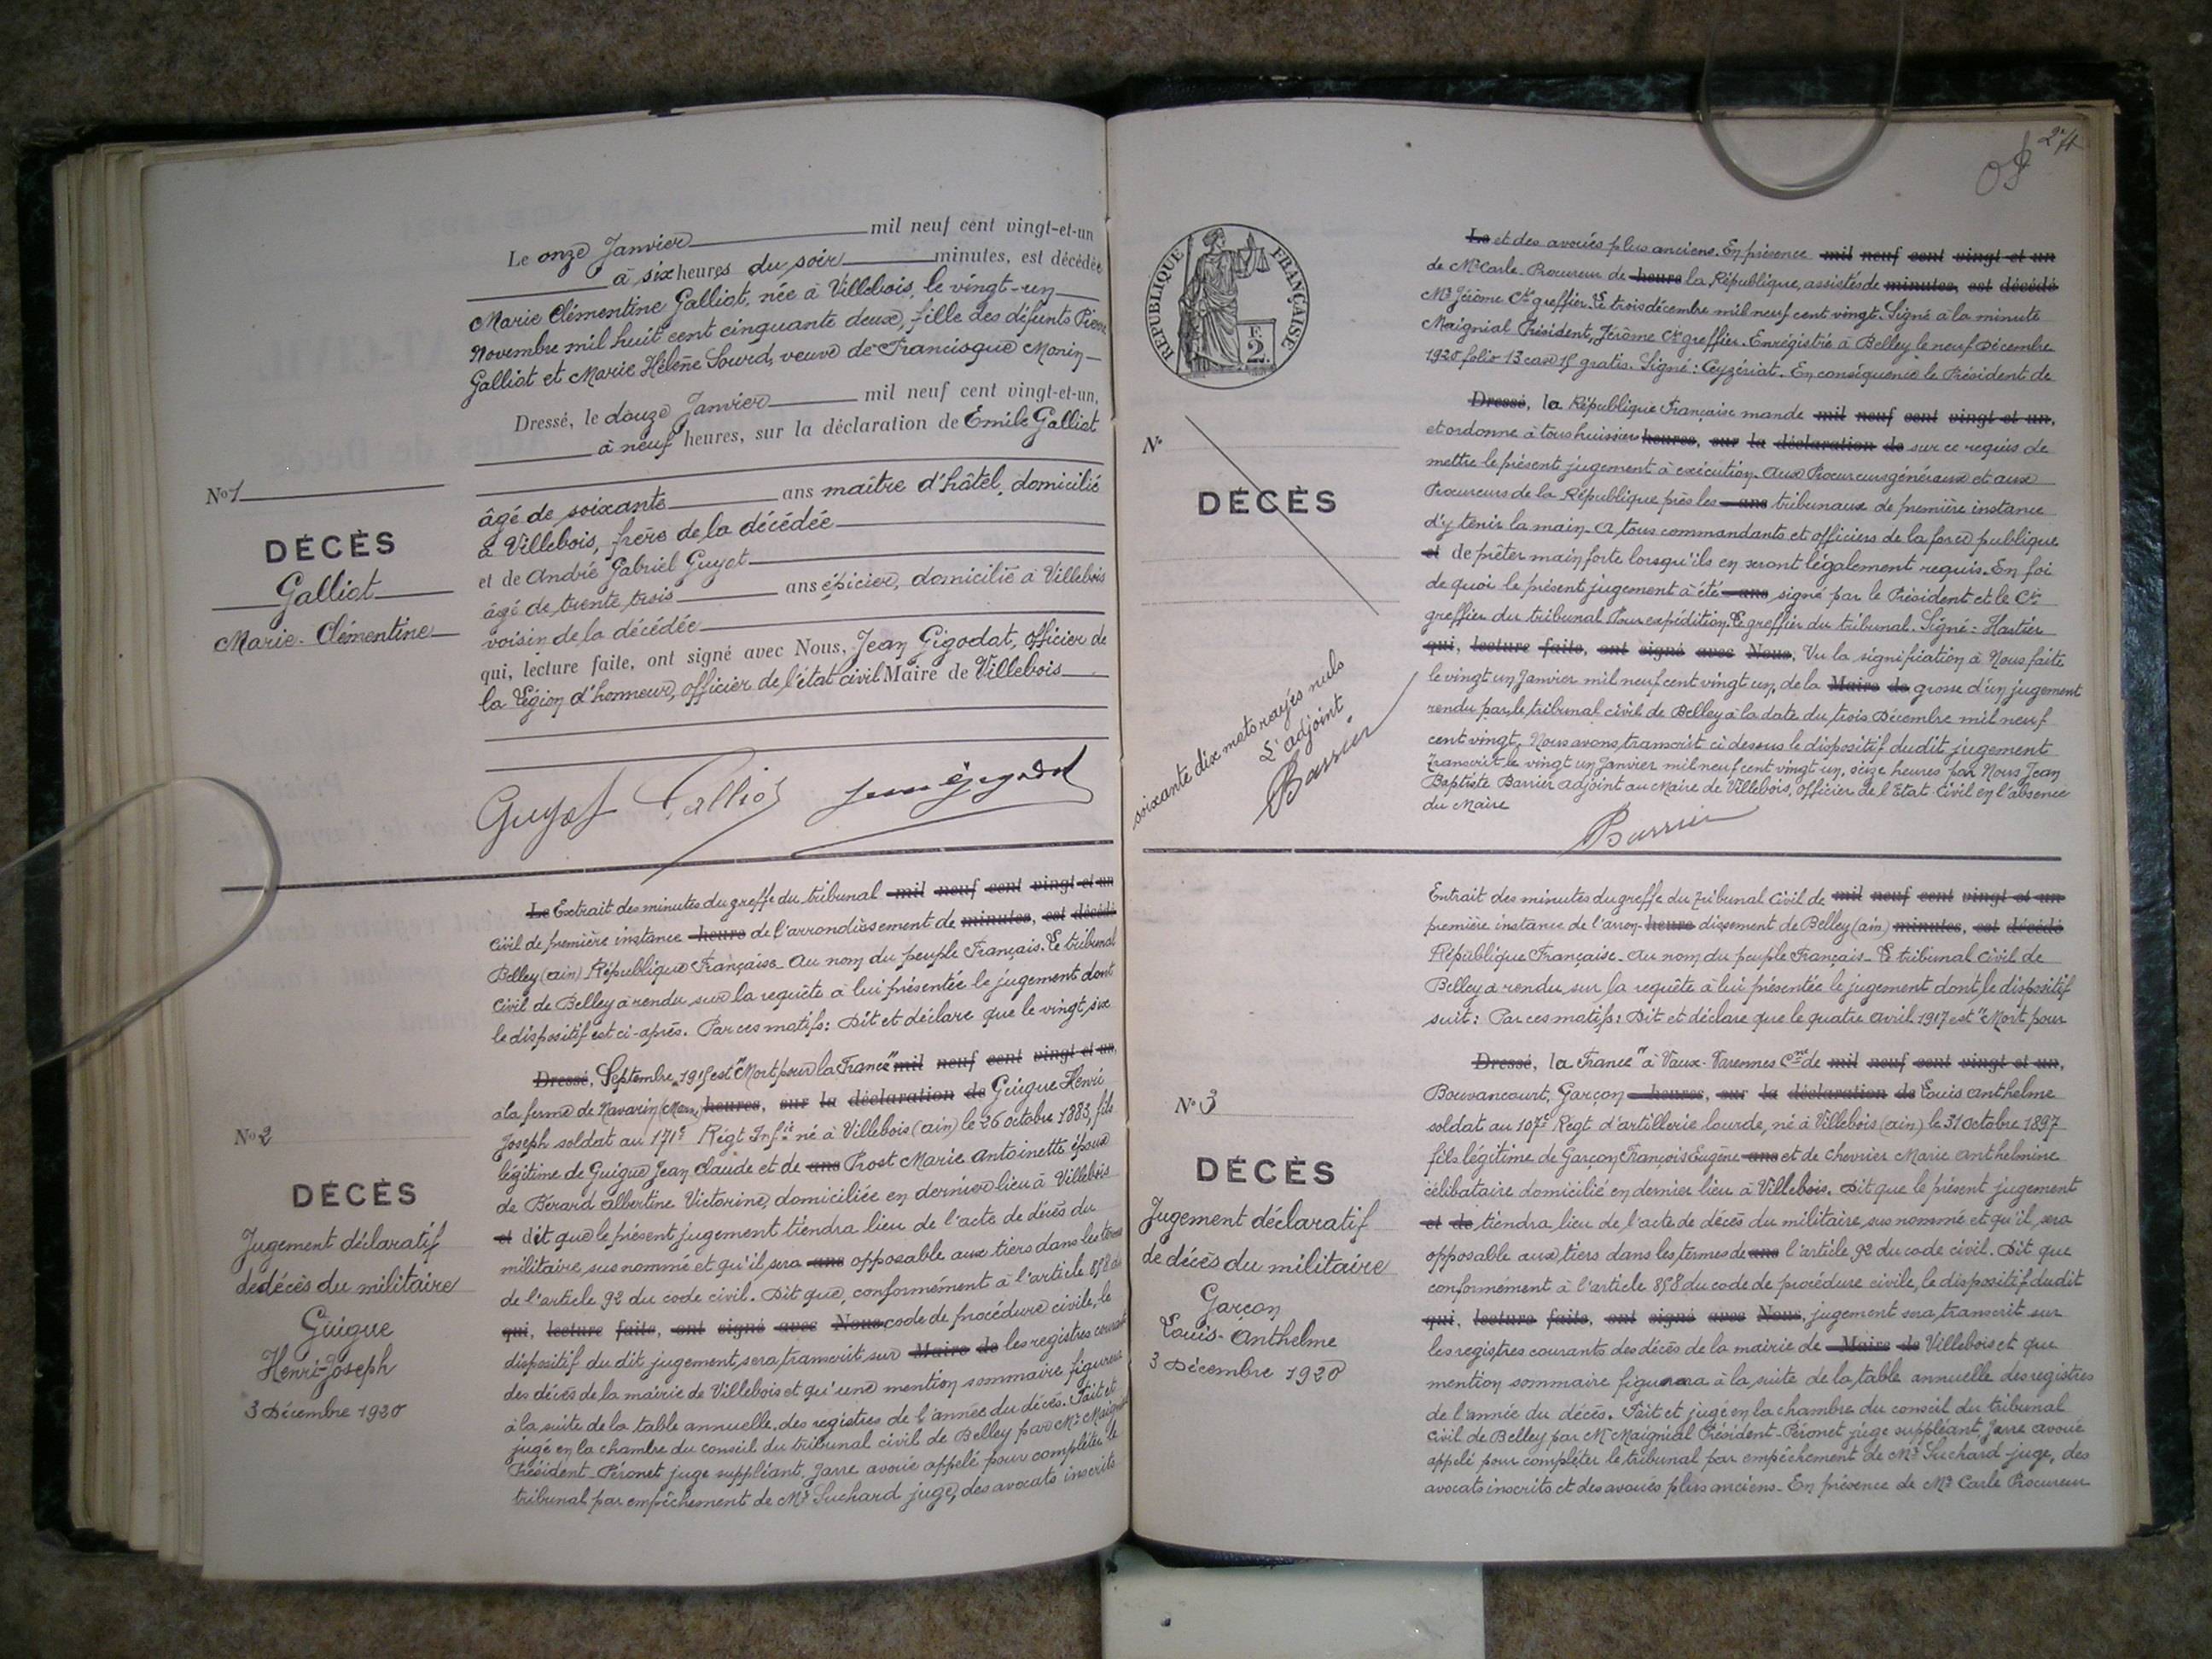 Le onze Janvier mil neuf cent vingt-et-un
à six heures du soir minutes, est décédée
Marie Clémentine Galliot, née à Villebois, le vingt-un
Novembre mil huit cent cinquante deux, fille des défunts Pierre
Galliot et Marie Hélène Sourd, veuve de Francisque Monin
Dressé, le douze Janvier mil neuf cent vingt-et-un,
à neuf heures, sur la déclaration de Emile Galliot
âgé de soixante ans maître d'hôtel, domicilié
à Villebois, frère de la décédée
et de André Gabriel Guyot
âgé de trente trois ans épicier, domicilié à Villebois
voisin de la décédée
qui, lecture faite, ont signé avec Nous, Jean Gigodat, officier de
la Légion d'honneur, officier de l'état civil Maire de Villebois
Guyot Galliot Jean Gigodat
No 1
DÉCÈS
Galliot
Marie-Clémentine
Le Extrait des minutes du greffe du tribunal mil neuf cent vingt-et-un
civil de première instance heure de l'arrondissement de minutes, est décédé
Belley (ain) République Française. Au nom du peuple Français. Le tribunal
civil de Belley a rendu sur la requête à lui présentée le jugement dont
le dispositif est ci-après. Par ces motifs: Dit et déclare que le vingt six
Dressé, Septembre 1915 est "Mort pour la France" mil neuf cent vingt-et-un,
à la ferme de Navarin (Marne) heures, sur la déclaration de Guigue Henri
Joseph soldat au 171e Régt Infie né à Villebois (ain) le 26 octobre 1883, fils
légitime de Guigue Jean Claude et de ans Prost Marie Antoinette époux
de Bérard Albertine Victorine, domiciliée en dernier lieu à Villebois
et dit que le présent jugement tiendra lieu de l'acte de décès du
militaire sus nommé et qu'il sera ans opposable aux tiers dans les termes
de l'article 92 du code civil. Dit que, conformément à l'article 858 du
qui, lecture faite, ont signé avec Nous code de procédure civile, le
dispositif du dit jugement sera transcrit sur Maire de les registres courants
des décès de la mairie de Villebois et qu'une mention sommaire figurera
à la suite de la table annuelle des registres de l'année du décès. Fait et
jugé en la chambre du conseil du tribunal civil de Belley par Mr Maignial
Président - Péronet juge suppléant. Jarre avoué appelé pour compléter le
tribunal par empêchement de Mr Suchard juge, des avocats inscrits
No 2
DÉCÈS
Jugement déclaratif
de décès du militaire
Guigue
Henri-Joseph
3 Décembre 1920
24
RÉPUBLIQUE FRANÇAISE
2
Le et des avoués plus anciens. En présence mil neuf cent vingt et un
de Mr Carle Procureur de heure la République, assistés de minutes, est décédé
Mr Jérôme Cis greffier. Le trois décembre mil neuf cent vingt. Signé à la minute
Maignial Président, Jérôme Cis greffier. Enregistré à Belley le neuf Décembre
1920 folio 13 case 15 gratis. Signé: Ceyzériat. En conséquence le Président de
Dressé, la République Française mande mil neuf cent vingt et un,
et ordonne à tous huissiers heures, sur la déclaration de sur ce requis de
mettre le présent jugement à exécution. Aux Procureurs généraux et aux
Procureurs de la République près les ans tribunaux de première instance
d'y tenir la main. A tous commandants et officiers de la force publique
et de prêter main forte lorsqu'ils en seront légalement requis. En foi
de quoi le présent jugement a été ans signé par le Président et le Cis
greffier du tribunal Pour expédition. Le greffier du tribunal. Signé: Hastier
qui, lecture faite, ont signé avec Nous, Vu la signification à Nous faite
le vingt un Janvier mil neuf cent vingt un, de la Maire de grosse d'un jugement
rendu par le tribunal civil de Belley à la date du trois Décembre mil neuf
cent vingt. Nous avons transcrit ci dessus le dispositif dudit jugement
Transcrit le vingt un Janvier mil neuf cent vingt un, seize heures par Nous Jean
Baptiste Barrier adjoint au Maire de Villebois, officier de l'Etat-Civil en l'absence
du Maire
Barrier
No
DÉCÈS
soixante dix mots rayés nuls
L'adjoint
Barrier
Extrait des minutes du greffe du Tribunal Civil de mil neuf cent vingt et un
première instance de l'arron- heure dissement de Belley (ain) minutes, est décédé
République Française. Au nom du peuple Français. Le tribunal Civil de
Belley a rendu sur la requête à lui présentée le jugement dont le dispositif
suit: Par ces motifs: Dit et déclare que le quatre Avril 1917 est "Mort pour
Dressé, la France" à Vaux-Varennes Cne de mil neuf cent vingt et un,
Bouvancourt, Garçon heures, sur la déclaration de Louis Anthelme
soldat au 107e Régt d'artillerie lourde, né à Villebois (ain) le 31 octobre 1897
fils légitime de Garçon François Eugène ans et de Chevrier Marie Anthelmine
célibataire domicilié en dernier lieu à Villebois. Dit que le présent jugement
et de tiendra lieu de l'acte de décès du militaire sus nommé et qu'il sera
opposable aux tiers dans les termes de ans l'article 92 du code civil. Dit que
conformément à l'article 858 du code de procédure civile, le dispositif dudit
qui, lecture faite, ont signé avec Nous, jugement sera transcrit sur
les registres courants des décès de la mairie de Maire de Villebois et que
mention sommaire figurera à la suite de la table annuelle des registres
de l'année du décès. Fait et jugé en la chambre du conseil du tribunal
civil de Belley par Mr Maignial Président - Péronet juge suppléant, Jarre avoué
appelé pour compléter le tribunal par empêchement de Mr Suchard juge, des
avocats inscrits et des avoués plus anciens. En présence de Mr Carle Procureur
No 3
DÉCÈS
Jugement déclaratif
de décès du militaire
Garçon
Louis-Anthelme
3 Décembre 1920